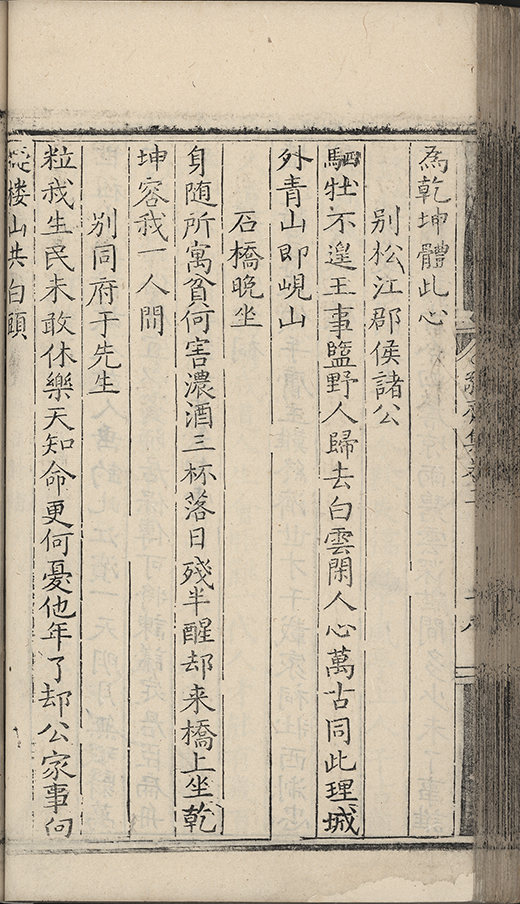 為乾坤體此心
别松江郡侯諸公
駟牡不遑王事盬野人歸去白雲閑人心萬古同此理城
外青山即峴山
石橋晚坐
身随所寓貧何害濃酒三杯落日殘半醒却来橋上坐乾
坤容我一人間
别同府于先生
粒我生民未敢休樂天知命更何憂他年了却公家事向
楼山共白頭